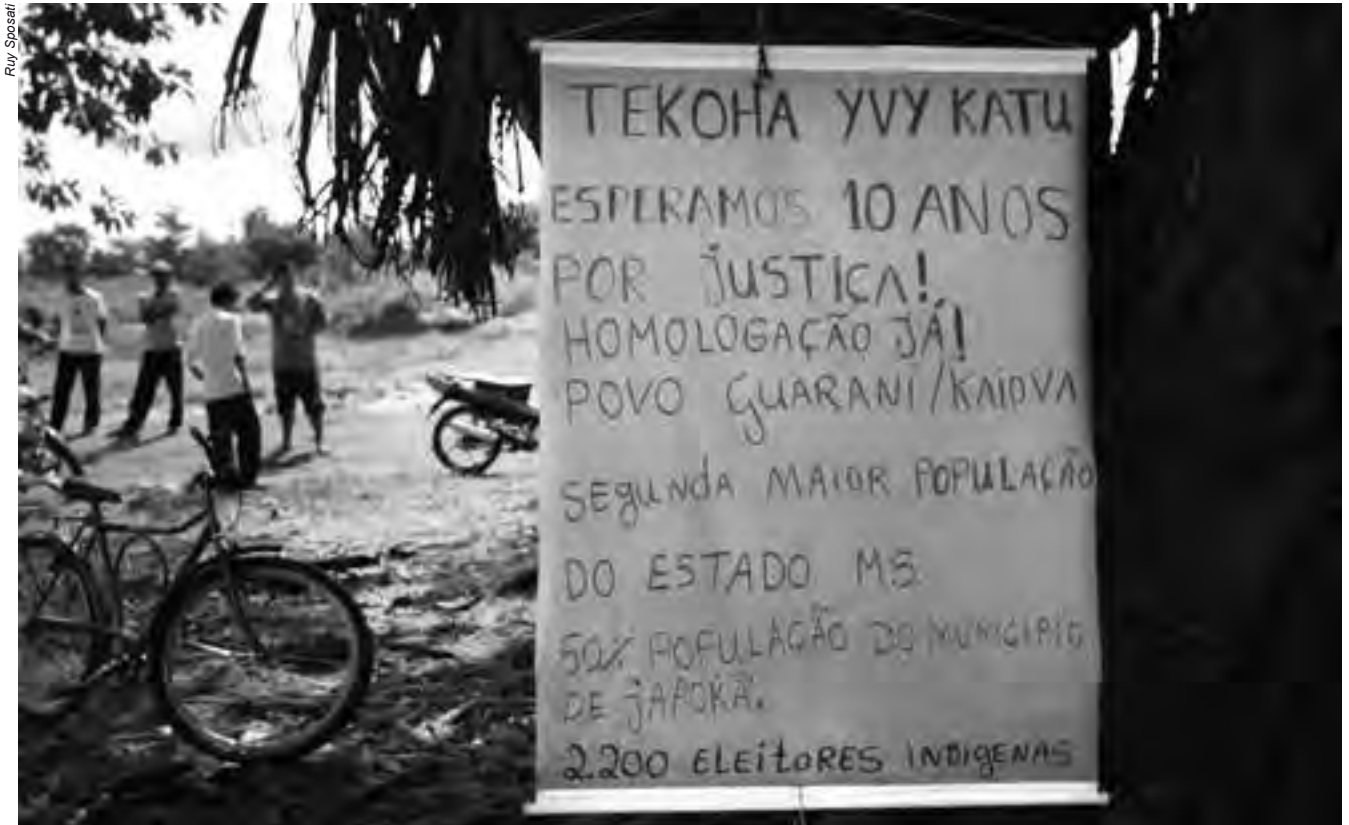 Ruy Sposati
TEKOHA YVY KATU
ESPERAMOS 10 ANOS
POR JUSTIÇA!
HOMOLOGAÇÃO JÁ!
POVO GUARANI/KAIOVA
SEGUNDA MAIOR POPULAÇÃO
DO ESTADO MS
50% POPULAÇÃO DO MUNICIPIO
DE JAPORÃ.
2.200 ELEITORES INDIGENAS